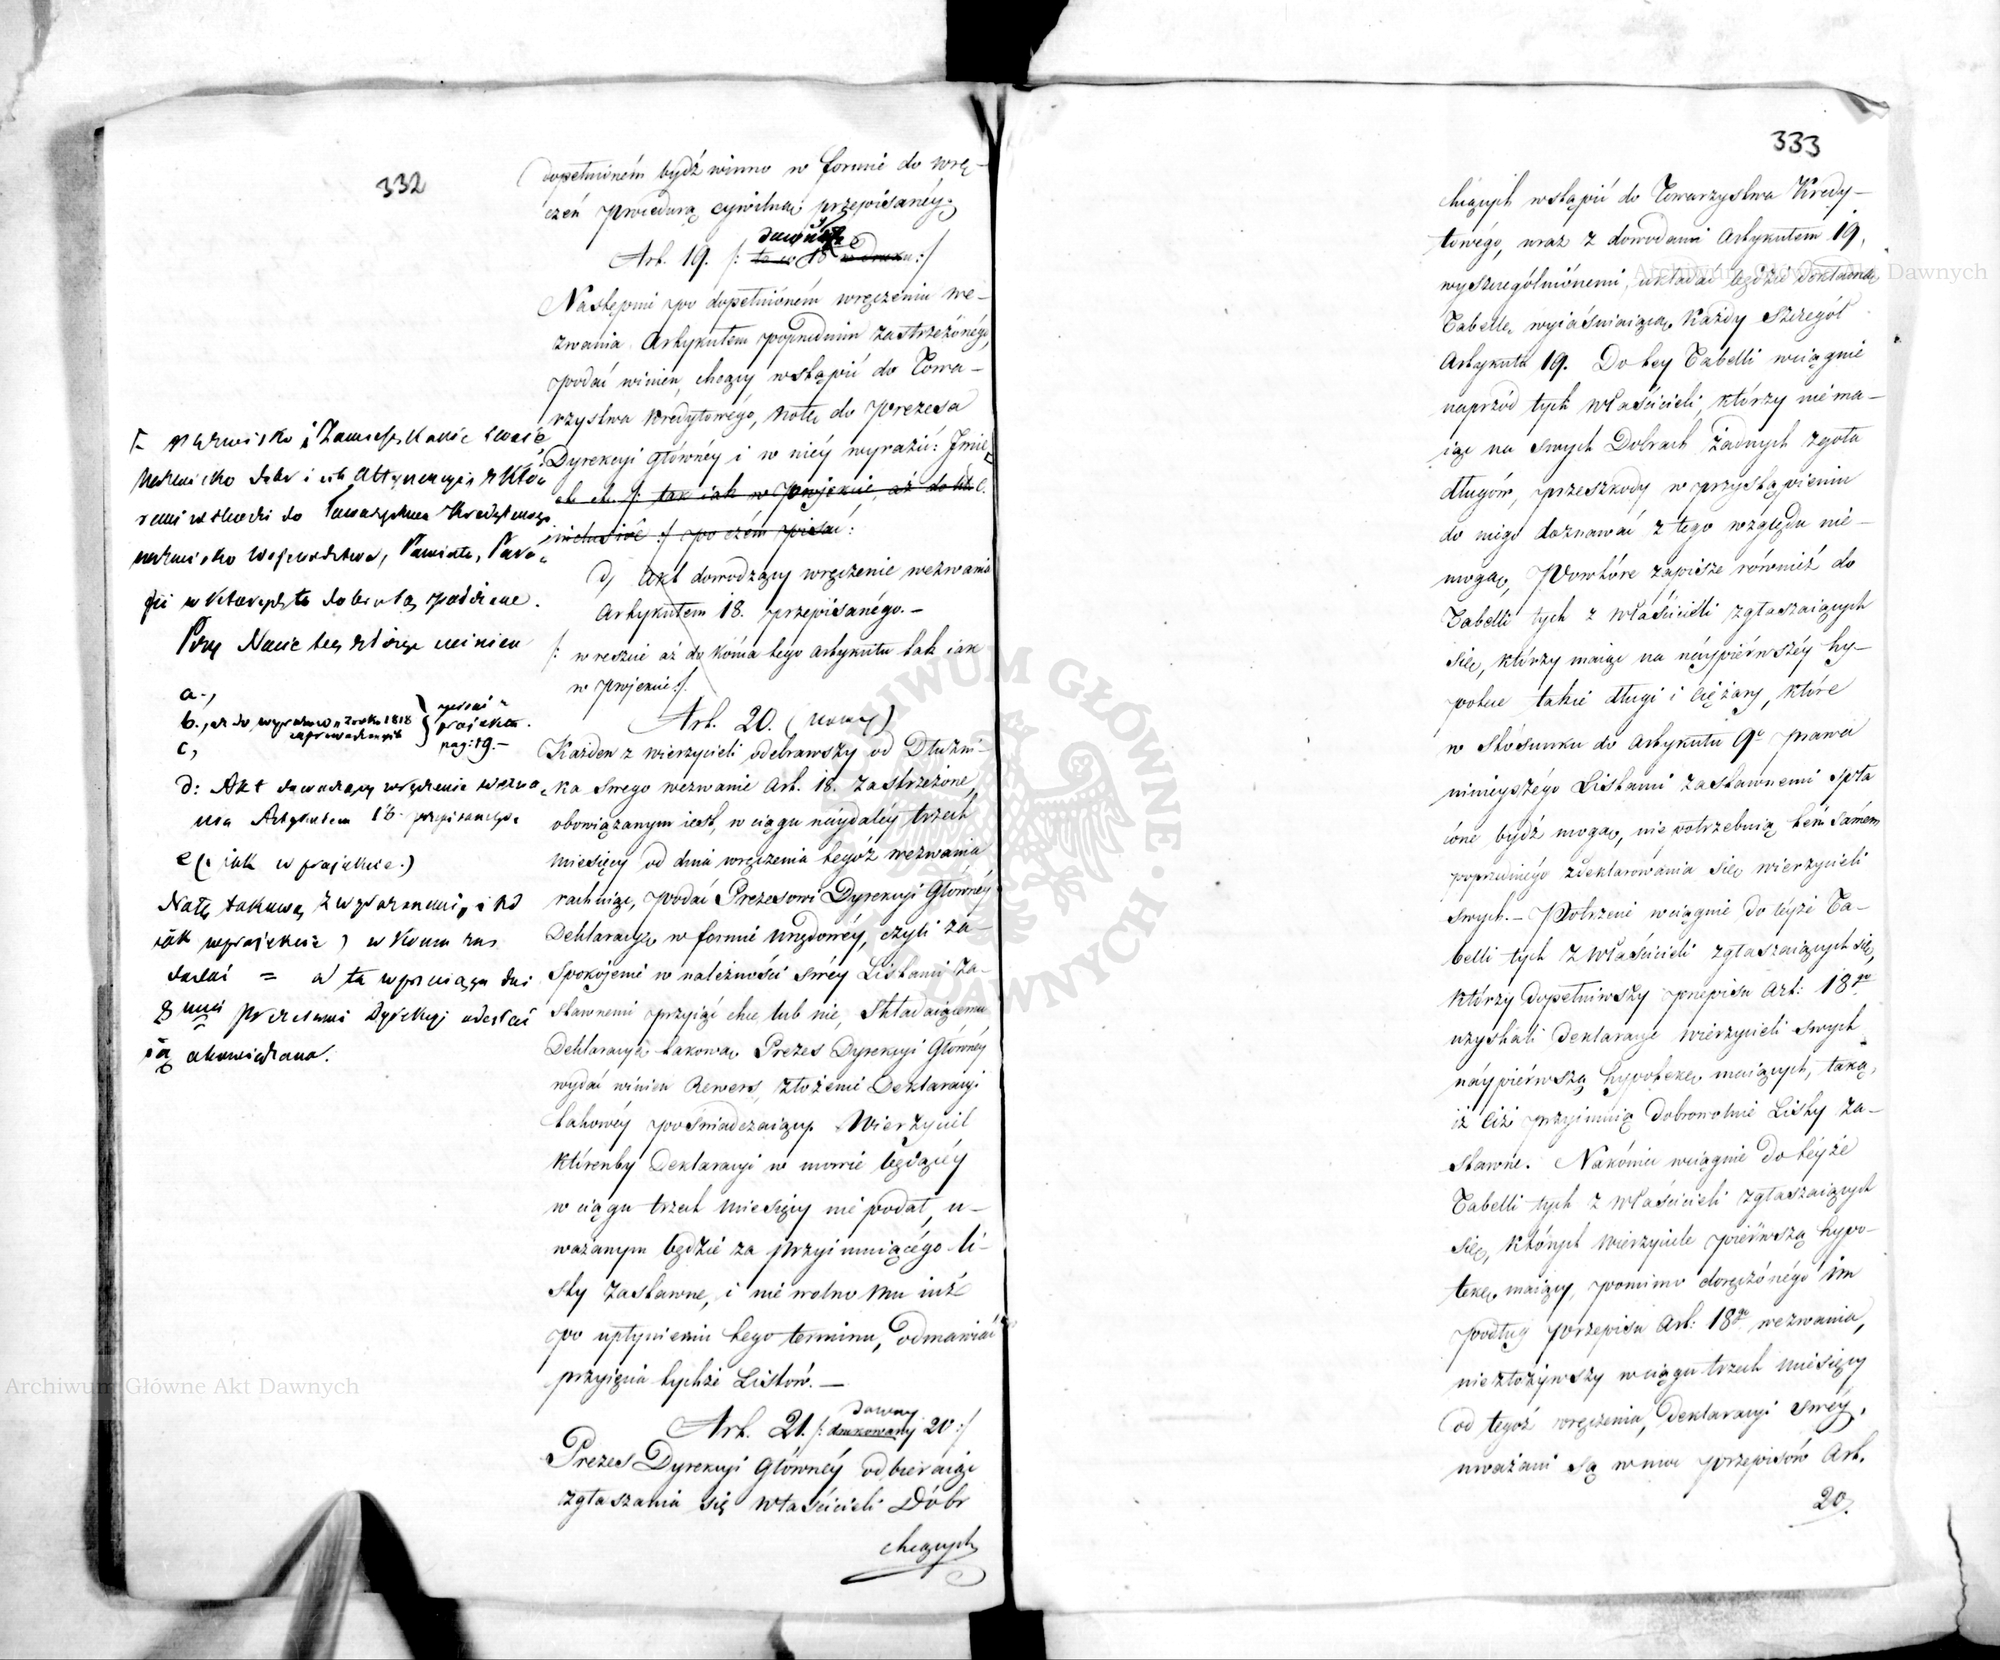 332
dopełnioném bydź winno w formie do wrę-
czeń procedurą cywilną przepisanéy.
dawniéy
Art. 19. /: to w 18 w druku :/
Następnie po dopełnioném wręczeniu we-
zwania Artykułem poprzednim zastrzeżonégo,
podać winien, chcący wstąpić do Towa-
rzystwa Kredytowégo, notę do Prezesa
Dyrekcyi Główney i w niéy wyrazić: Jmie,
etc. etc. /: tak iak w Projekcie, aż do lit. C.
inclusivè :/ po czém pisać:
d, Akt dowodzący wręczenie wezwania
Artykułem 18. przepisanégo. –
/: wreszcie aż do końca tego Artykułu tak iak
w Projekcie :/.
Art. 20. (nowy)
Każden z wierzycieli odebrawszy od Dłużni-
ka swego wezwanie Art. 18. zastrzeżone,
obowiązanym iest, w ciągu naydaléy trzech
miesięcy od dnia wręczenia tegoż wezwania
rachuiąc, podać Prezesowi Dyrekcyi Główney
Deklaracyę w formie urzędowéy, czyli za-
spokojenie w należności swéy Listami Za-
stawnemi przyiąć chce lub nie, Składaiącemu
Deklaracyą takową Prezes Dyrekcyi Główney
wydać winien Rewers, złożenie Deklaracyi
takowéy poświadczaiący. Wierzyciel
którenby Deklaracyi w mowie będącéy
w ciągu trzech miesięcy nie podał, u-
ważanym będzie za przyimuiącégo Li-
sty zastawne, i nie wolno mu iuż
po upłynieniu tego terminu, odmawiać
przyięcia tychże Listów. —
dawny
Art. 21. /: drukowany 20 :/
Prezes Dyrekcyi Główney odbieraiąc
zgłaszania się właścicieli Dóbr
chcących
nazwisko i Zamieszkanie swoie
nazwisko dóbr i ich Attynencyi z któ-
remi wchodzi do Towarzystwa Kredytowego
nazwisko Województwa, Powiatu, Para-
fii w których te dobra są położone.
Przy Nocie tey złożyć winien
a.,
b., aż do wyrazów z roku 1818
zaprowadzonych
pisać z
projektu.
pag: 19. –
c,
d: Akt dowodzący wręczenie wezwa-
nia Artykułem 18. przepisanego.
e (: iak w projekcie :)
Notę takową z wyrazami, i td
iak w projekcie) w końcu zaś
dodać = a ta w przeciągu dni
8 miu Prezesowi Dyrekcyi odesłać
są obowiązane.
333
chcących wstąpić do Towarzystwa Kredy-
towégo, wraz z dowodami Artykułem 19,
wyszczególnionemi, układać będzie dokładną
Tabellę wyiaśniaiącą każdy szczegół
Artykułu 19. Do tey Tabelli wciągnie
naprzód tych właścicieli, którzy nie ma-
iąc na swych Dobrach żadnych zgoła
długów, przeszkody w przystąpieniu
do niego doznawać z tego względu nie
mogą, Powtóre zapisze również do
Tabelli tych z właścicieli zgłaszaiących
się, którzy maiąc na náypierwszéy hy-
potece takie długi i ciężary, które
w stósunku do Artykułu 9º prawa
ninieyszégo Listami zastawnemi spła
cone bydź mogą, nie potrzebuią tém samém
poprzedniégo zdeklarowania się wierzycieli
swych. – Potrzecie wciągnie do teyże Ta-
belli tych z właścicieli zgłaszaiących się,
którzy dopełniwszy przepisu Art: 18go
uzyskali Deklaracye wierzycieli swych
náypierwszą hypotekę maiących, taką,
iż ciż przyimuią dobrowolnie Listy Za-
stawne. Nakóniec wciągnie do téyże
Tabelli tych z właścicieli zgłaszaiących
się, których wierzyciele pierwszą hypo-
tekę maiący, pomimo doręczonégo im
podług przepisu Art: 18go wezwania,
niezłożywszy w ciągu trzech miesięcy
od tegoż wręczenia, Deklaracyi swéy,
uważani są w moc przepisów Art.
20.